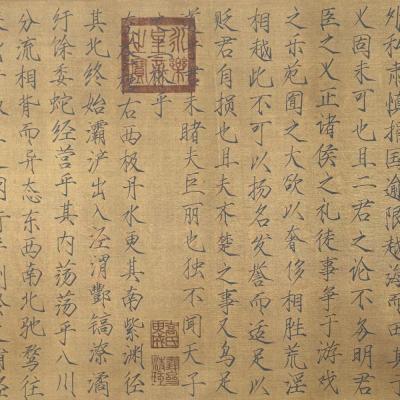 外私肃慎捐国逾限越海而田其
义固未可也且二君之论不务明君
臣之义正诸侯之礼徒事争于游戏
之乐苑囿之大欲以奢侈相胜荒淫
相越此不可以扬名发誉而适足以
贬君自损也且夫齐楚之事又乌足
君未睹夫巨丽也独不闻天子
乎
右西极丹水更其南紫渊径
其北终始灞浐出入泾渭酆镐潦潏
纡馀委蛇经营乎其内荡荡乎八川
分流相背而异态东西南北驰骛往